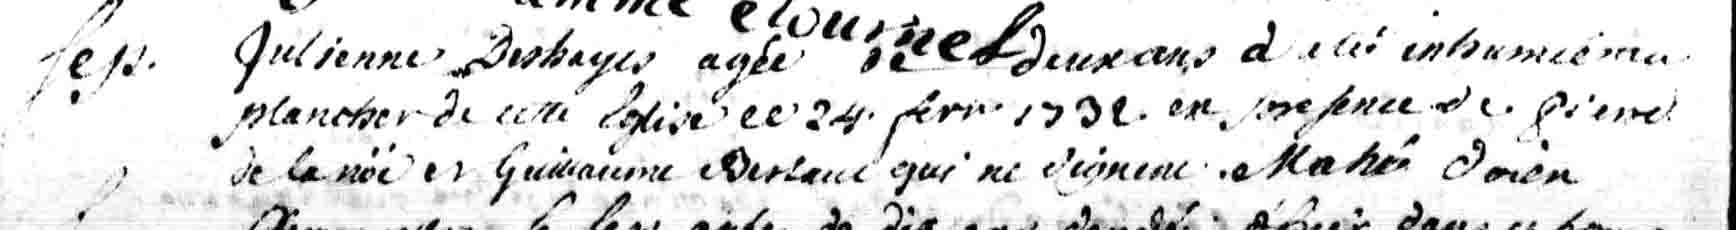 Etournel
Sep. Julienne Deshayes agée de deux ans a eté inhumée au
plancher de cette Eglise ce 24. fevr. 1732. en presence de Pierre
de la nöe et Guillaume Bertaud qui ne signent. Mahé doien
de dix ans